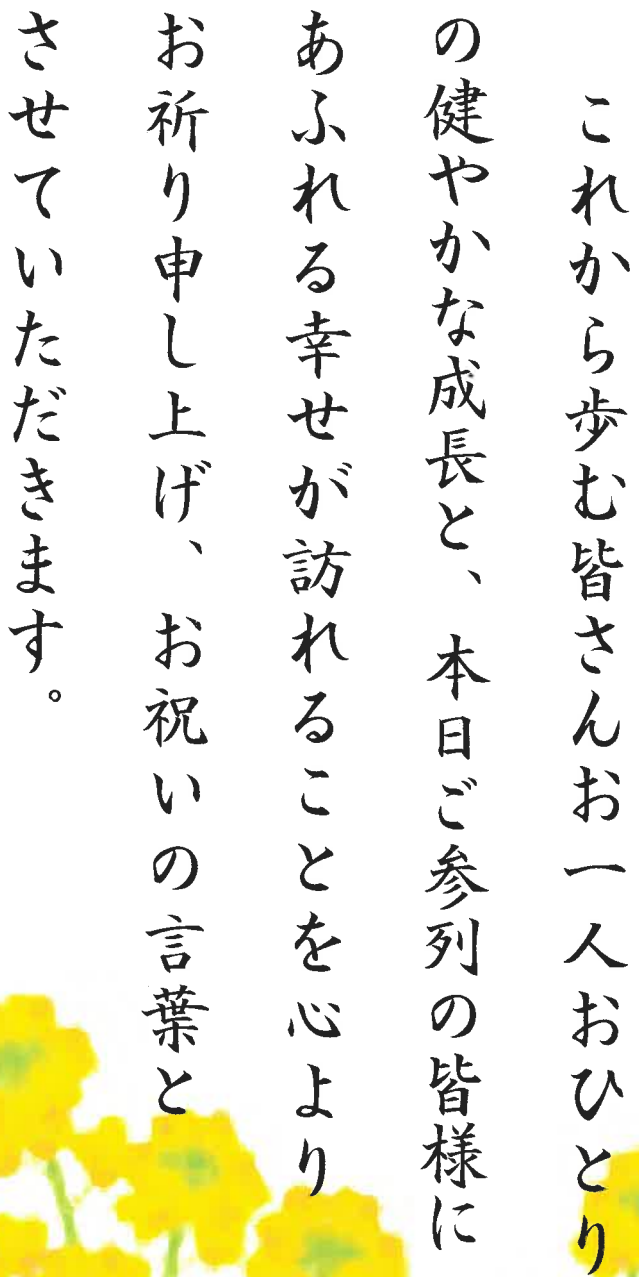 これから歩む皆さんお一人おひとり
の健やかな成長と、本日ご参列の皆様に
あふれる幸せが訪れることを心より
お祈り申し上げ、お祝いの言葉と
させていただきます。